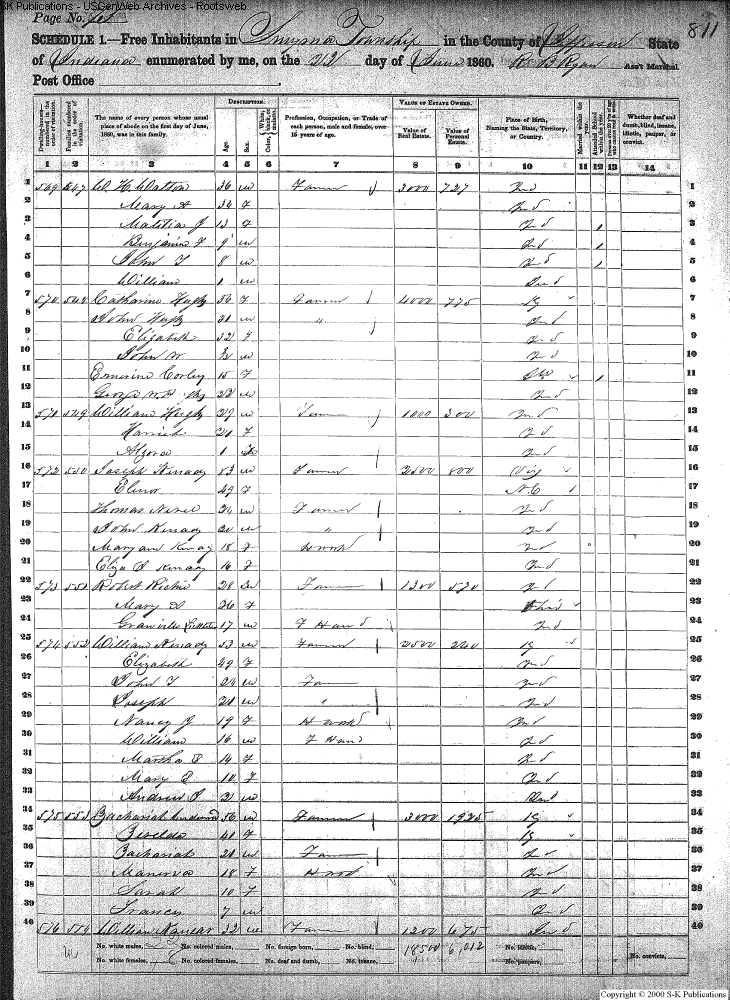 SK Publications - USGenWeb Archives - Rootsweb
Page No.
811
SCHEDULE 1.—Free Inhabitants in Smyrna Township in the County of Jefferson State
of Indiana enumerated by me, on the 22 day of June 1860. R B Ryan Ass't Marshal.
Post Office
DESCRIPTION. VALUE OF ESTATE OWNED.
Dwelling-houses—numbered in the order of visitation.
Families numbered in the order of visitation.
The name of every person whose usual place of abode on the first day of June, 1860, was in this family.
Age.
Sex.
Color, White, black, or mulatto.
Profession, Occupation, or Trade of each person, male and female, over 15 years of age.
Value of Real Estate.
Value of Personal Estate.
Place of Birth, Naming the State, Territory, or Country.
Married within the year.
Attended School within the year.
Whether deaf and dumb, blind, insane, idiotic, pauper, or convict.
1 2 3 4 5 6 7 8 9 10 11 12 13 14
1 569 547 W. H. Watton 36 m Farmer 3000 727 Ind 1
2 Mary A 34 f Ind 2
3 13 f Ind 1 3
4 Benjamin F 9 m Ind 1 4
5 John T 8 m Ind 1 5
6 William 1 m Ind 6
7 570 548 Catharine Hugh 56 f Farmer 4000 775 Ky 7
8 John Hugh 31 m " Ind 8
9 Elizabeth 32 f Ind 9
10 John W m Ind 10
11 Corley 15 f 1 11
12 George 22 m Ind 12
13 571 549 William Hugh 29 m Farmer 1000 300 Ind 13
14 Harriet 21 f Ind 14
15 Alzora 1 f Ind 15
16 572 550 Joseph Kenady 53 m Farmer 2500 800 Virg 16
17 Elenor 49 f N.C 17
18 Thomas 24 m Farmer Ind 18
19 John Kenady 20 m " Ind 19
20 Mary ann Kenady 18 f H work Ind 20
21 Eliza Kenady 16 f Ind 21
22 573 551 Robert Richie 28 m Farmer 1300 570 Ind 22
23 Mary 26 f Ohio 23
24 Granville 17 m F Hand Ind 24
25 574 552 William Kenady 53 m Farmer 2500 240 Ky 25
26 Elizabeth 49 f Ind 26
27 John T 24 m Farmer Ind 27
28 Joseph 21 m " Ind 28
29 Nancy J 19 f H work Ind 29
30 William 16 m F Hand Ind 30
31 Martha 14 f Ind 31
32 Mary E 10 f Ind 32
33 Andrew J 2 m Ind 33
34 575 553 Zachariah 56 m Farmer 3000 1925 Ky 34
35 41 f Ky 35
36 Zachariah 21 m Farmer Ind 36
37 Manerva 18 f H work Ind 37
38 Sarah 10 f Ind 38
39 Francis 7 m Ind 39
40 576 554 William 32 m Farmer 1200 675 Ind 40
No. white males, No. colored males, No. foreign born, No. blind, 18500 6,012 No. idiotic,
No. white females, No. colored females, No. deaf and dumb, No. insane, No. paupers, No. convicts,
Copyright © 2000 S-K Publications